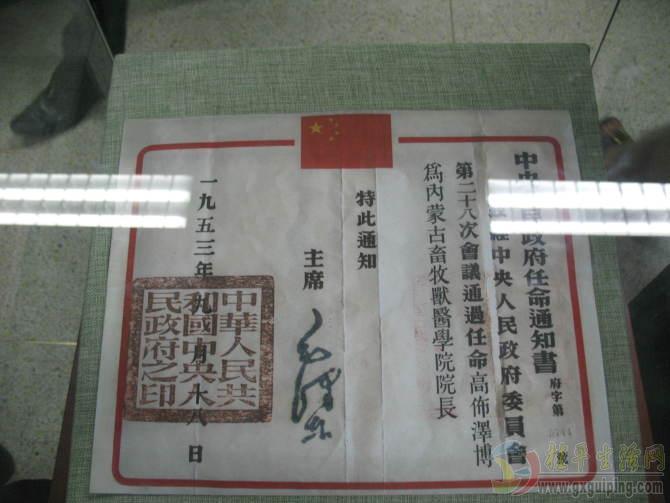 中央人民政府任命通知書 府字第 號
經中央人民政府委員會
第二十八次會議通過任命高佈澤博
爲內蒙古畜牧獸醫學院院長
特此通知
主席 毛澤東
一九五三年九月十八日
中華人民共
和國中央人
民政府之印
桂平生活网
www.gxguiping.com